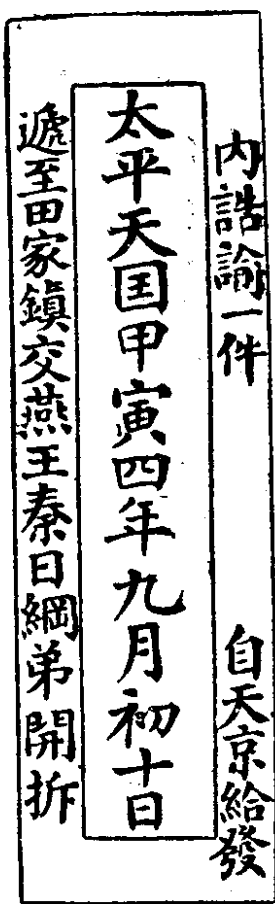 內誥諭一件　自天京給發
太平天囯甲寅四年九月初十日
遞至田家鎮交燕王秦日綱弟開拆